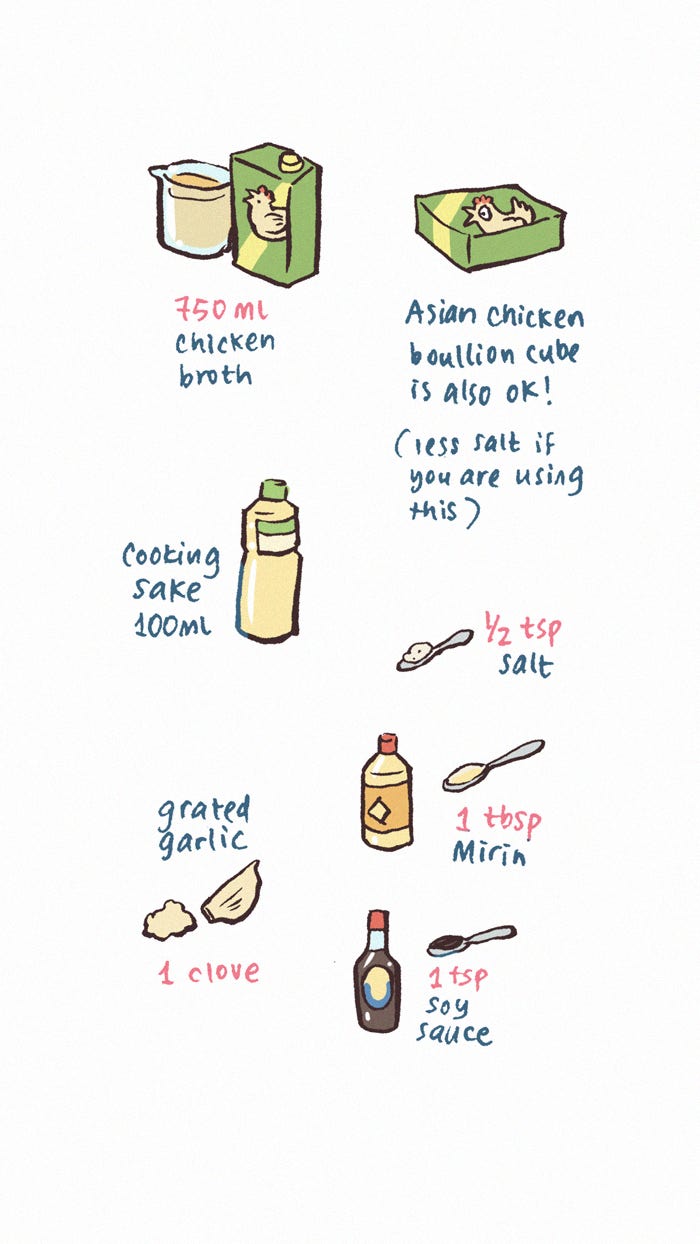 750 ml
chicken
broth
Asian chicken
boullion cube
is also OK!
(less salt if
you are using
this)
Cooking
sake
100ml
1/2 tsp
salt
1 tbsp
Mirin
grated
garlic
1 clove
1 tsp
soy
sauce